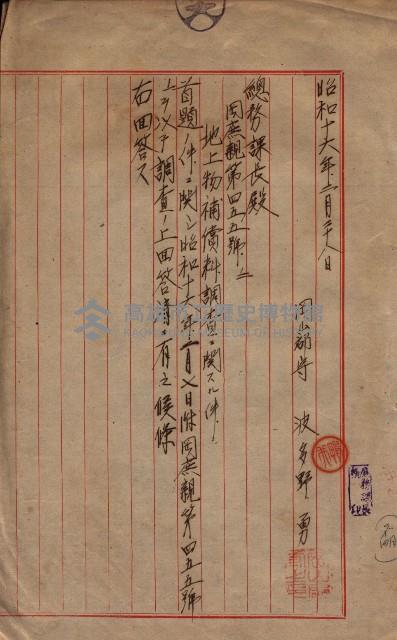 昭和十六年二月二十八日
岡山郡守 波多野勇
總務課長殿
岡庶親第四五五號ノ二
地上物補償料調査ニ関スル件
首題ノ件ニ関シ昭和十六年二月八日附岡庶親第四五五號
ヲ以テ調査ノ上回答濟ニ有之候條
右回答ス
高雄市立歷史博物館
KAOHSIUNG MUSEUM OF HISTORY